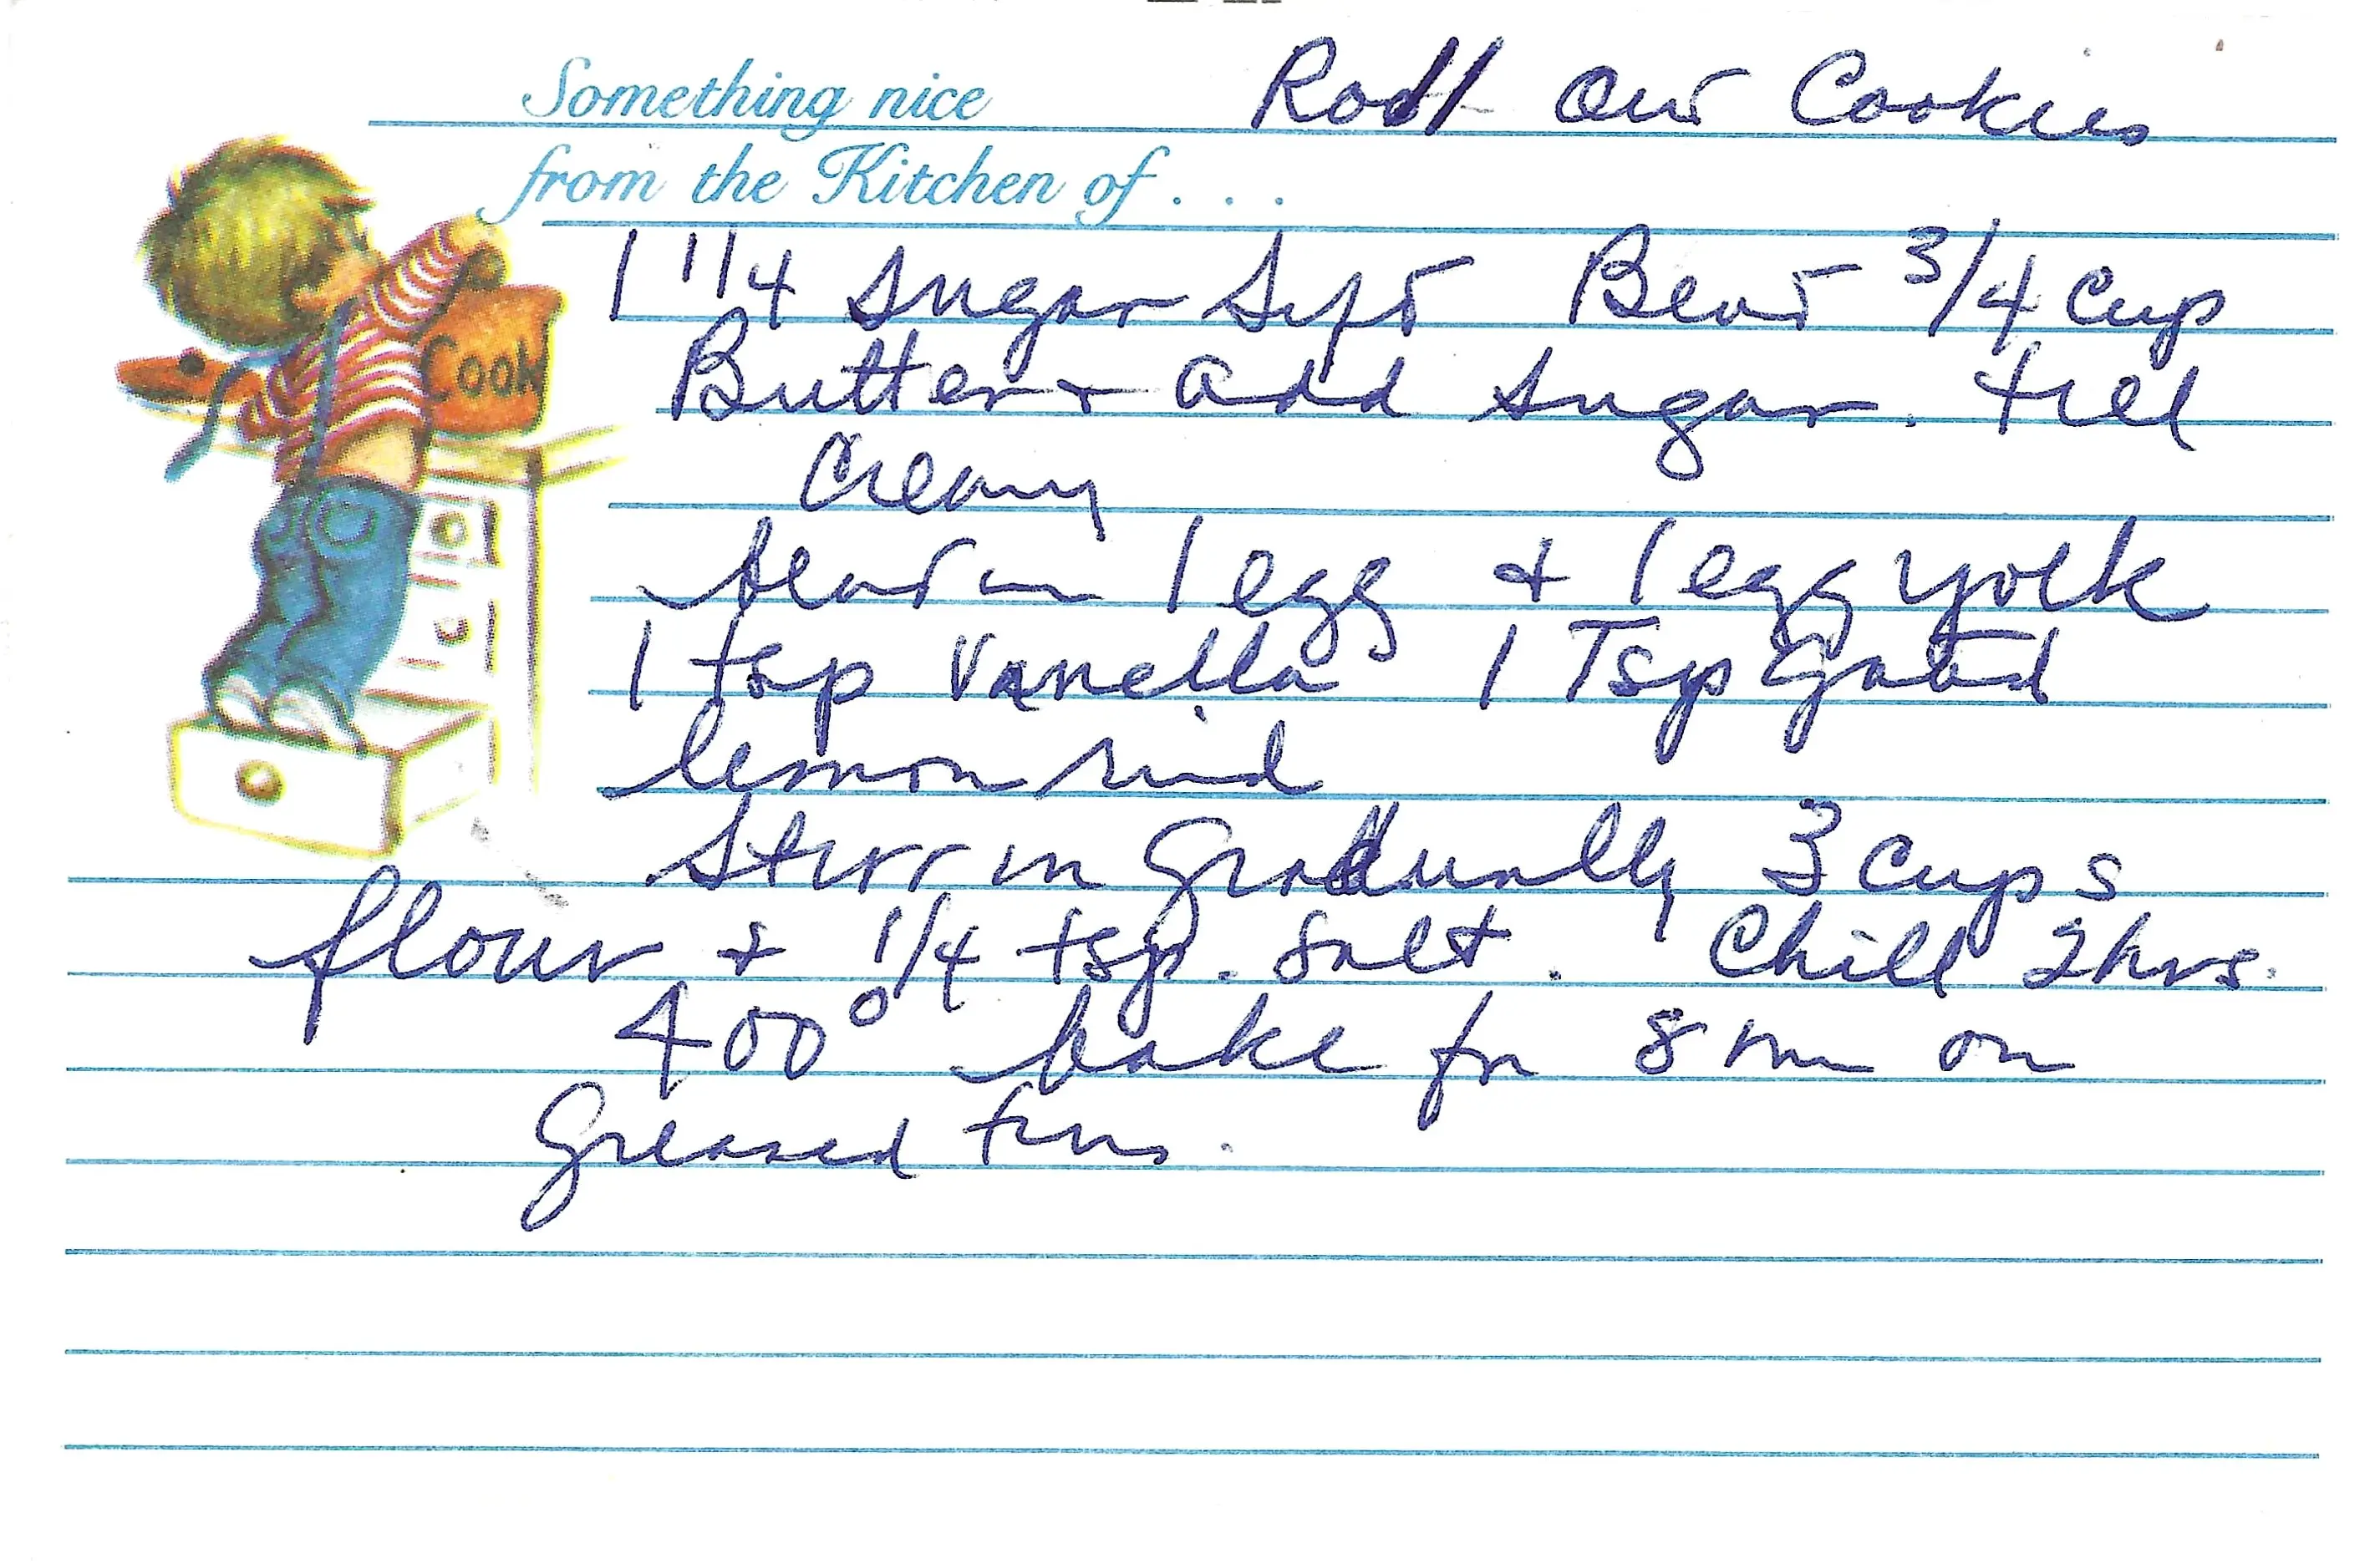 Something nice
Roll Out Cookies
from the Kitchen of . . .
1 1/4 sugar Sift Beat 3/4 cup
Butter + add sugar. till
Creamy
Cook
beat in 1 egg & 1 egg yolk
1 tsp Vanella 1 Tsp Grated
lemon rind
Stirr in Gradually 3 cups
flour & 1/4 tsp. salt. Chill 2 hrs.
400° bake for 8 min on
Greased tins.